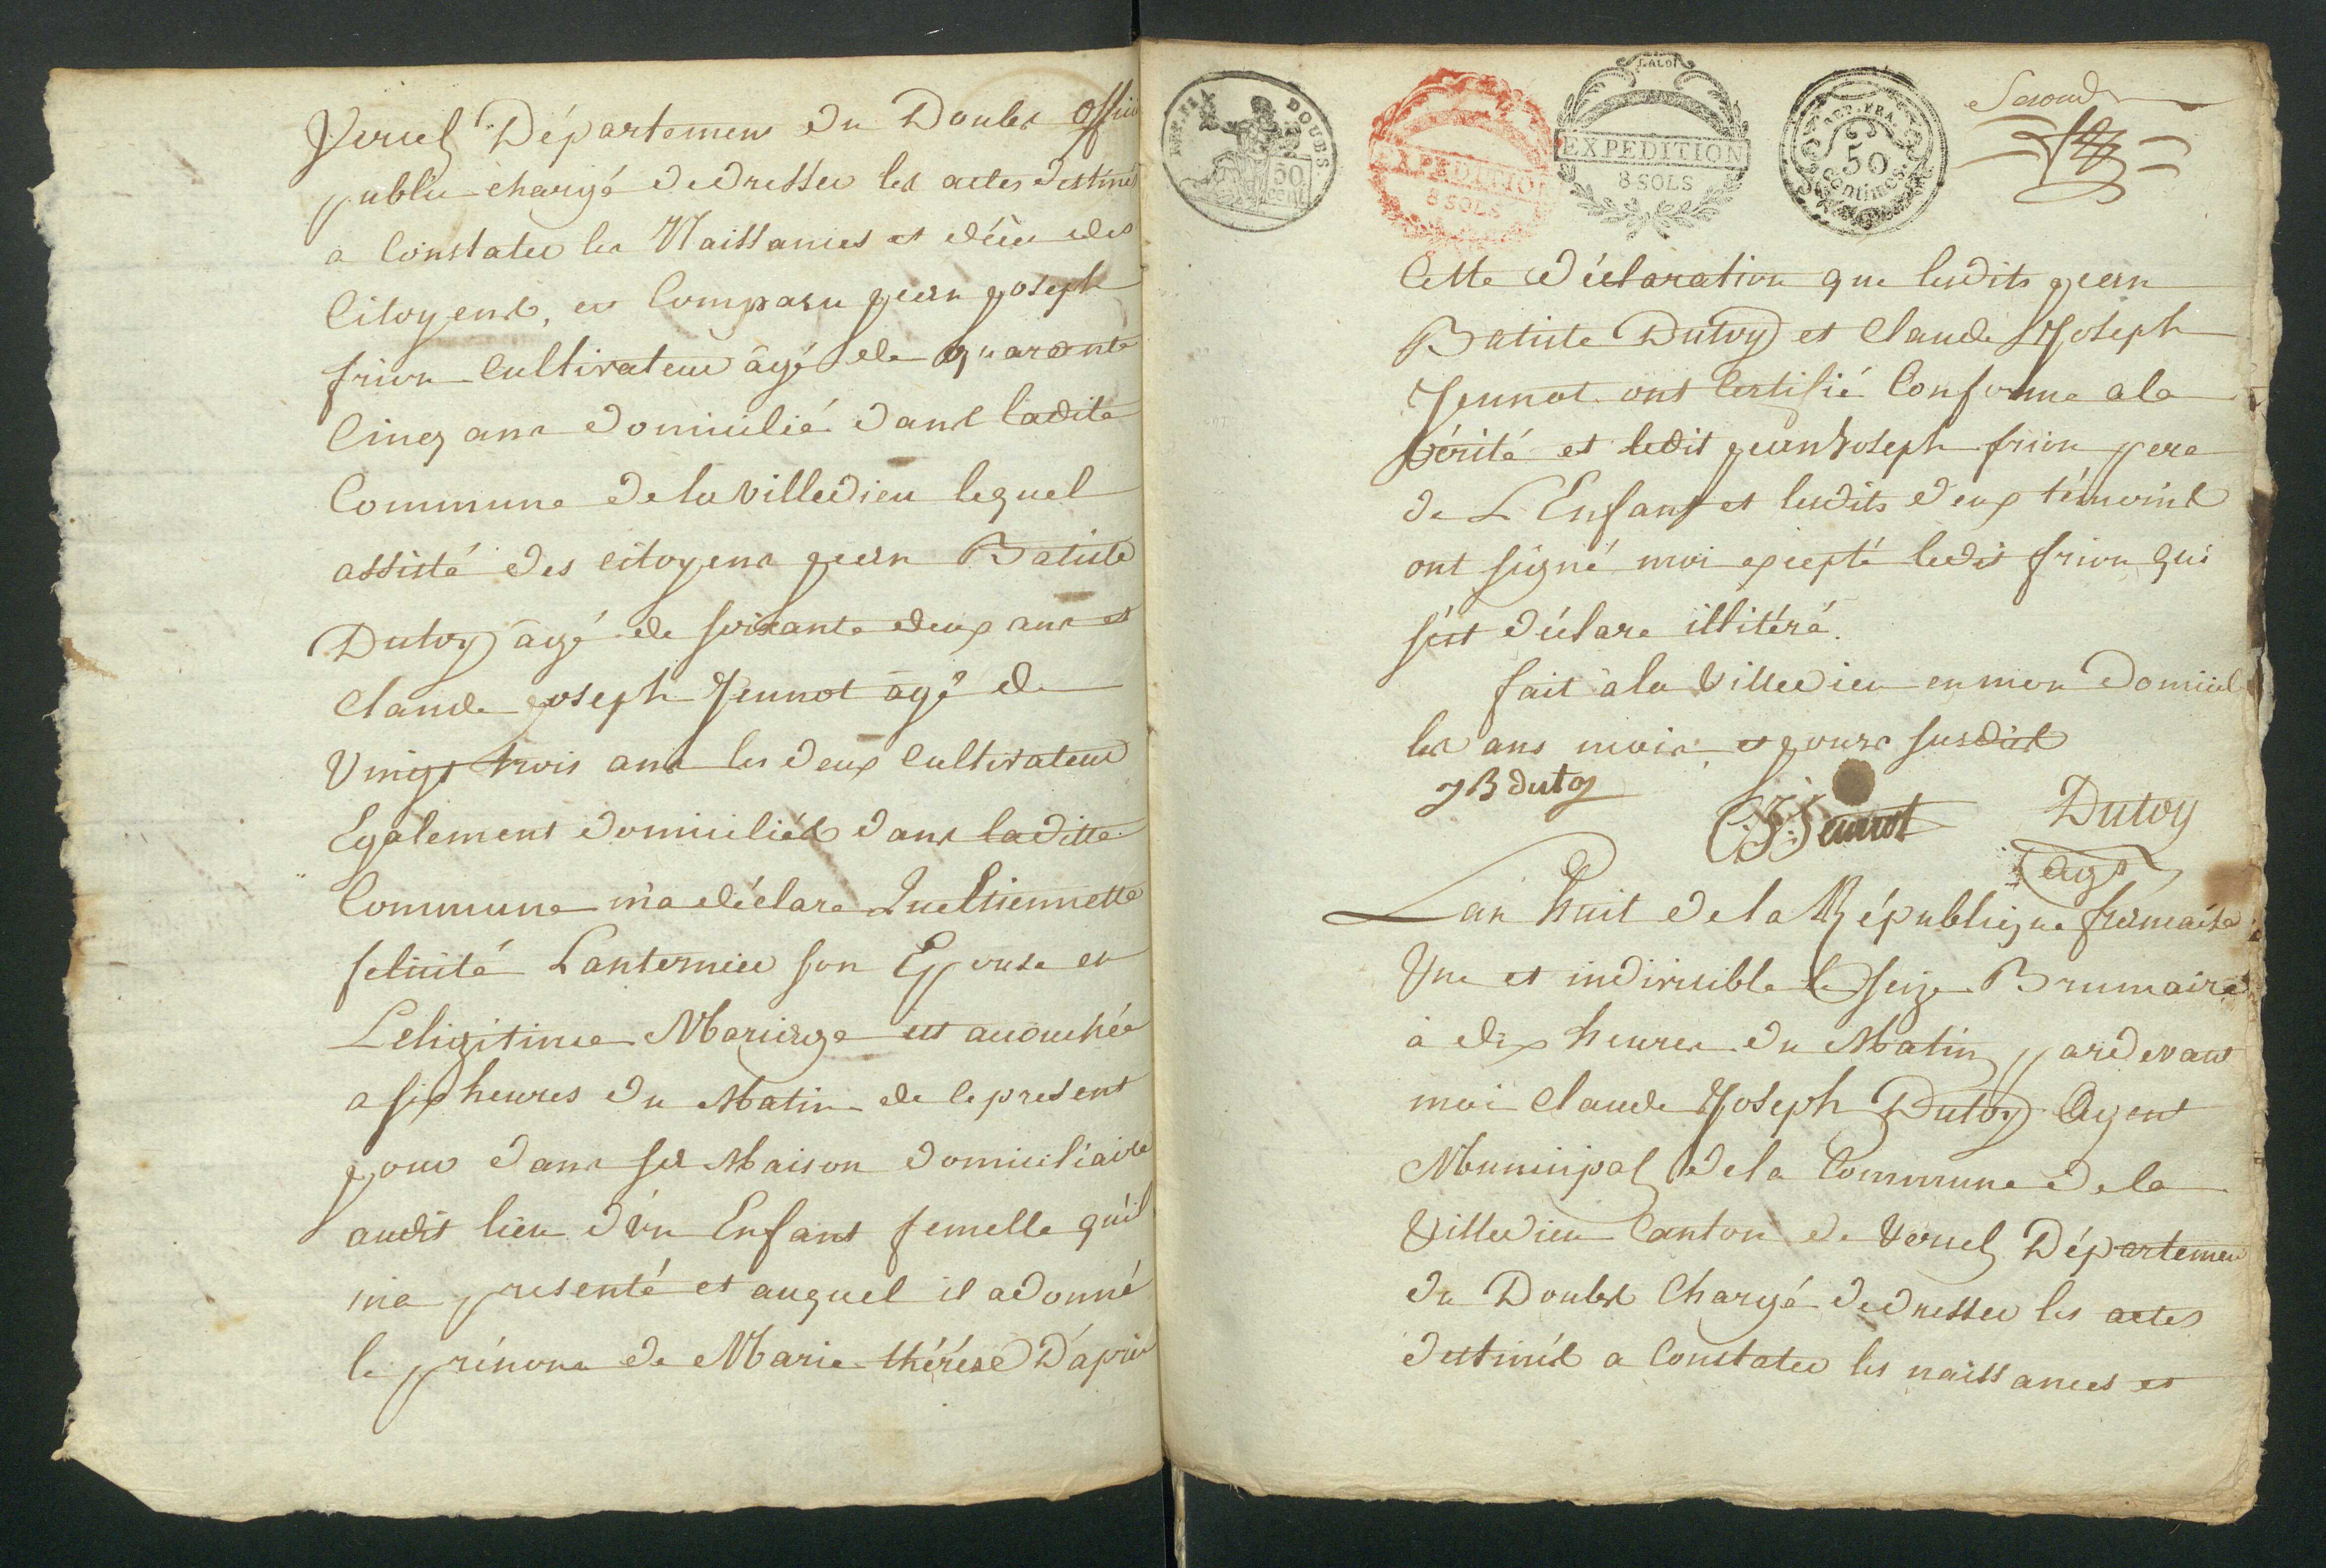 Vercel Département du Doubs offici
public chargé de dresser les actes destinés
a Constater les Naissances et décès des
Citoyens, est Comparu jean joseph
frion Cultivateur âgé de quarante
Cinq ans domicilié dans ladite
Commune de la villedieu lequel
assisté des citoyens jean Batiste
Dutoy âgé de soixante deux ans et
Claude joseph Jeunot âgé de
Vingt trois ans les deux Cultivateur
Egalement domiciliés dans laditte
Commune m'a déclare Que Etiennette
felicité Lanternier son Epouse en
Léligitime Mariage est accouchée
a six heures du Matin de le present
jour dans sa Maison domiciliaire
audit lieu d'un Enfant femelle qu'il
ma presenté et auquel il a donné
le prénom de Marie thérèse D'après
DOUBS
50 cent
EXPEDITION
8 SOLS
LA LOI
EXPEDITION
8 SOLS
REP. FRA.
50
centimes
Second
Cette déclaration que lesdits jean
Batiste Dutoy et Claude Joseph
Jeunot ont Certifié Conforme a la
vérité et ledit jean Joseph frion pere
de L'Enfant et lesdits deux témoins
ont signé moi excepté ledit frion qui
s'est déclare illitéré.
fait a la Villedieu en mon domicile
les ans mois et jours susdits
JB dutoy
CJ Jeunot
Dutoy
agt
Lan huit de la République francaise
Une et indivisible le seize Brumaire
à dix heures du Matin pardevant
moi Claude Joseph Dutoy Agent
Municipal de la Commune de la
Villedieu Canton de Vercel Départemen
du Doubs Chargé de dresser les actes
destinés a Constater les naissances et